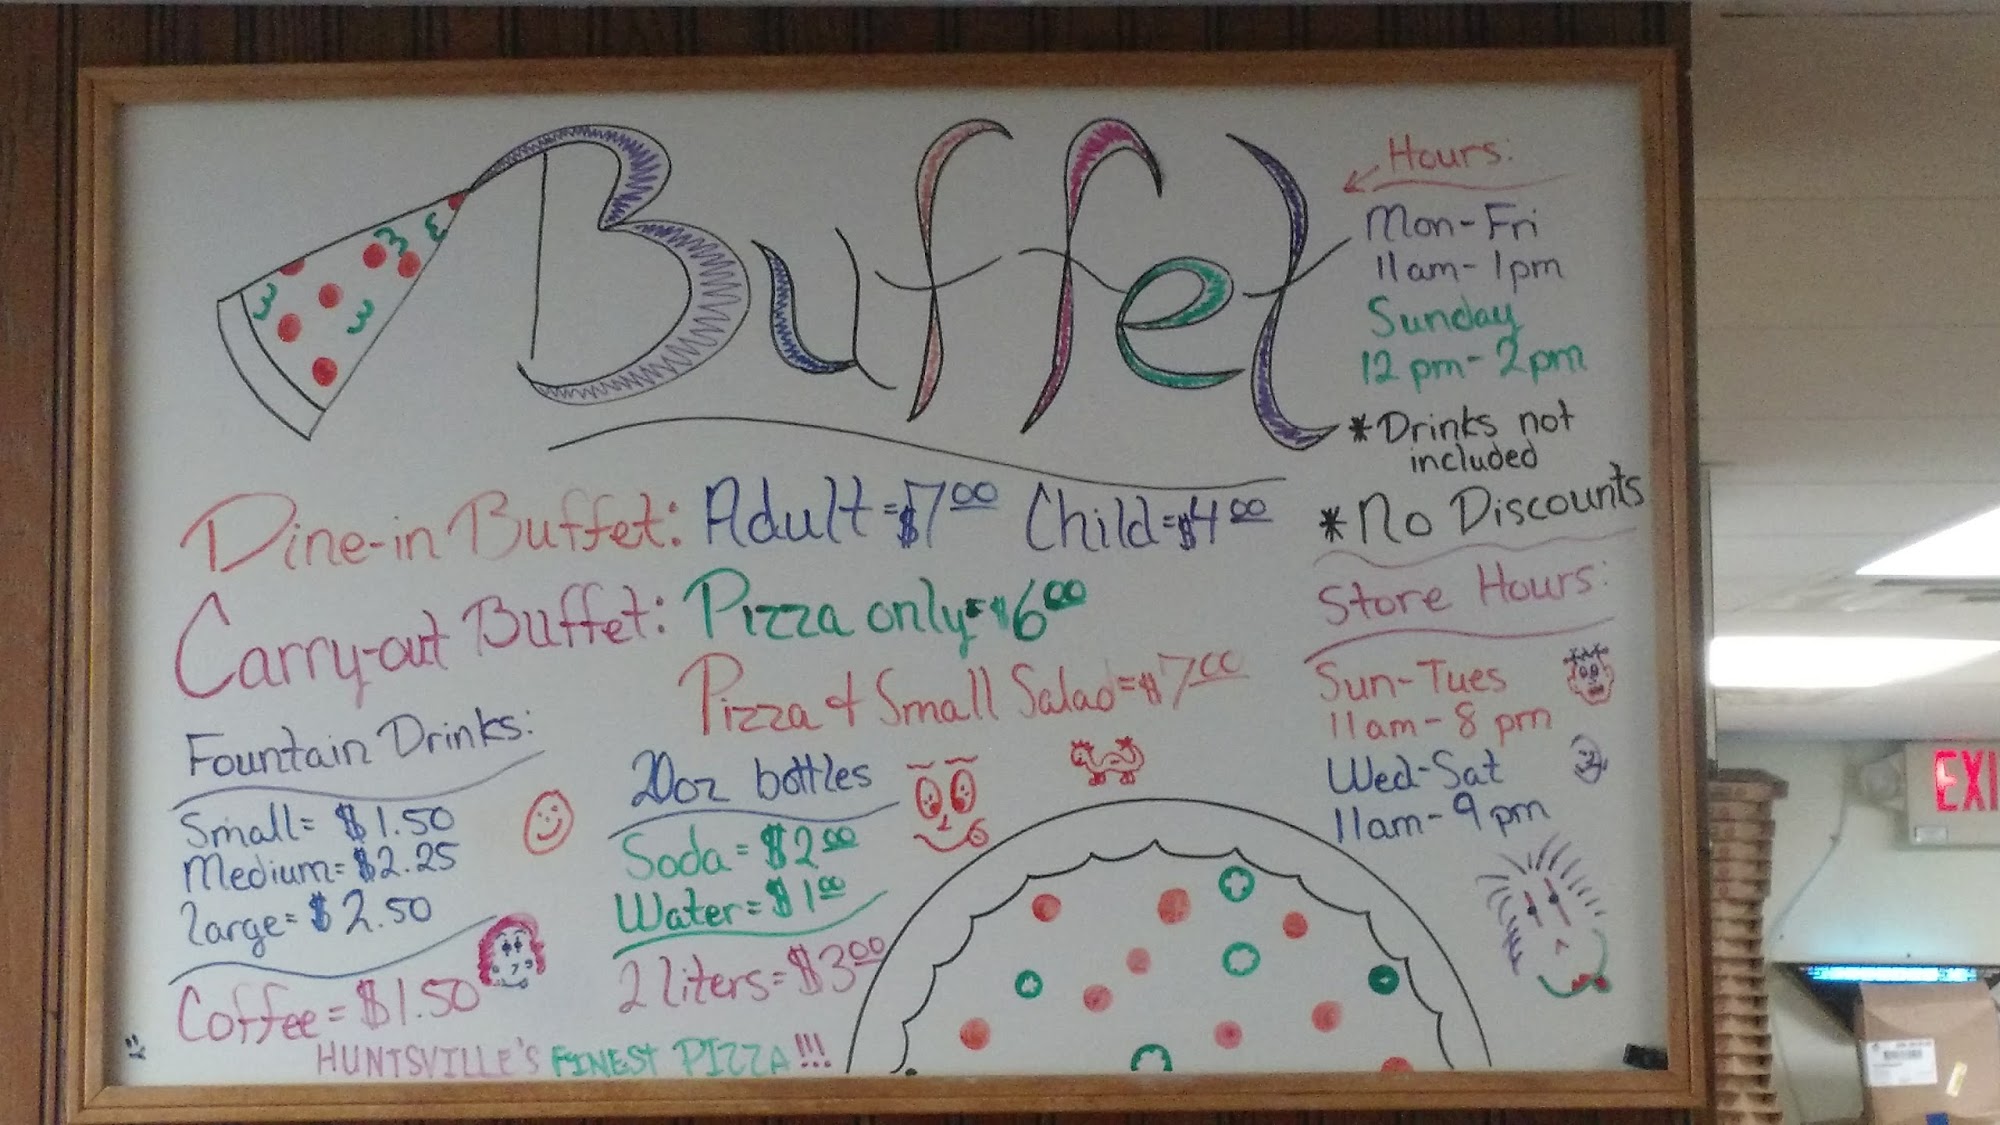 Buffet
Hours:
Mon-Fri
11am-1pm
Sunday
12pm-2pm
*Drinks not
included
*No Discounts
Dine-in Buffet: Adult=$7.00 Child=$4.00
Carry-out Buffet: Pizza only=$6.00
Pizza & Small Salad=$7.00
Store Hours:
Sun-Tues
11am-8pm
Wed-Sat
11am-9pm
Fountain Drinks:
Small= $1.50
Medium= $2.25
Large= $2.50
Coffee= $1.50
20oz bottles
Soda= $2.00
Water= $1.00
2 liters= $3.00
HUNTSVILLE'S FINEST PIZZA!!!
EXI